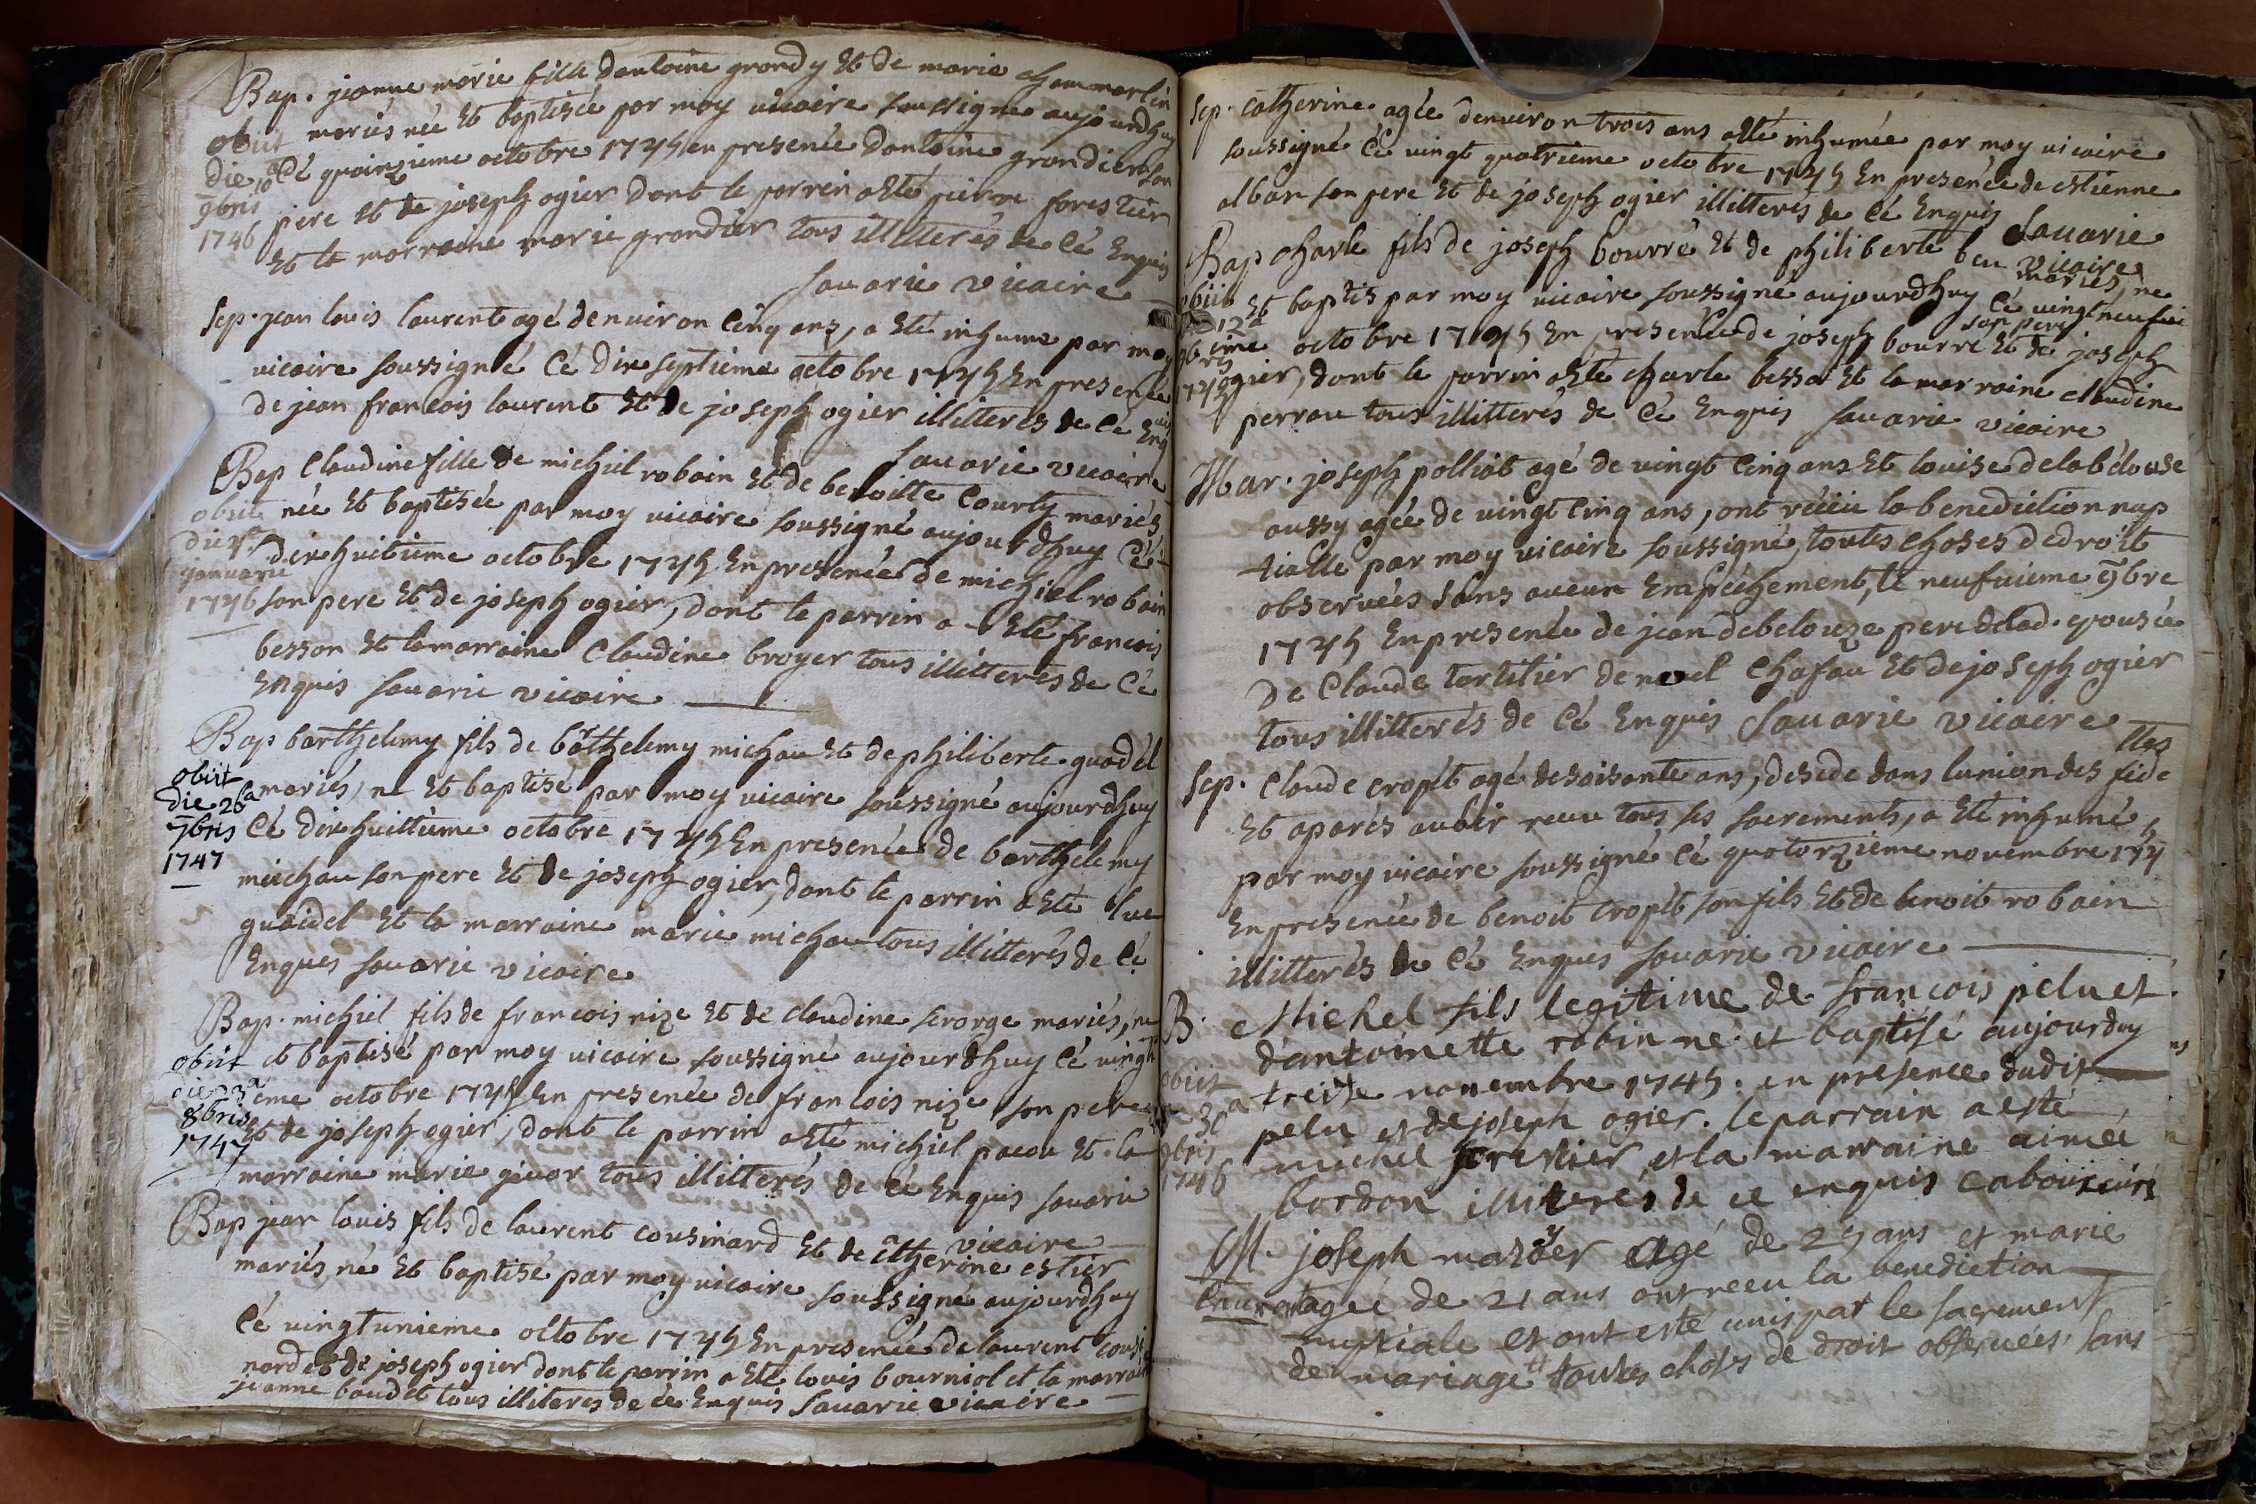 Bap. jeanne marie fille dantoine grandy Et de marie chammartin
obiit mariés née Et baptisée par moy vicaire soussigné aujourdhuy
die 10a Cé quinzieme octobre 1745 en presence dantoine grandier son
9bris pere Et de joseph ogier dont le parrin a Eté pierre forestier
1746 Et la marraine marie grandier tous illitterés de Cé Enquis
sauarie vicaire
Sep. jean louis laurent agé denuiron Cinq ans, a Eté inhumé par moy
vicaire soussigné Cé dix septieme octobre 1745 En presence
de jean francois laurent Et de joseph ogier illitterés de Cé Enquis
sauarie vicaire
Bap Claudine fille de michiel robain Et de benoitte Courty mariés
obiit née Et baptisée par moy vicaire soussigné aujourdhuy Cé
die dixhuitieme octobre 1745 En presence de michiel robain
januarii
1746 son pere Et de joseph ogier, dont le parrin a Eté francois
besson Et la marraine Claudine broyer tous illitterés de Cé
Enquis sauarie vicaire
Bap barthelemy fils de barthelemy michau Et de philiberte guadel
obiit mariés, né Et baptisé par moy vicaire soussigné aujourdhuy
die 26a
7bris Cé dixhuittieme octobre 1745 En presence de barthelemy
1747
michau son pere Et de joseph ogier, dont le parrin a Eté luc
guaidel Et la marraine marie michau tous illitterés de Cé
Enquis sauarie vicaire
Bap. michiel fils de francois nize Et de claudine ferorge mariés, né
obiit et baptisé par moy vicaire soussigné aujourdhuy Cé vingti
die 23a eme octobre 1745 En presence de francois nize son pere
8bris Et de joseph ogier, dont le parrin a Eté michiel pacou Et la
1747
marraine marie givor tous illitterés de Cé Enquis sauarie
vicaire
Bap jean louis fils de laurent cousinard Et de catherine estier
mariés né Et baptisé par moy vicaire soussigné aujourdhuy
Cé vingtunieme octobre 1745 En presence de laurent cousi
nard et de joseph ogier dont le parrin a Eté louis bourniol et la marraine
jeanne baudet tous illiterés de ce Enquis Sauarie vicaire
Sep. catherine agée denuiron trois ans a Eté inhumée par moy vicaire
soussigné Cé vingt quatrieme octobre 1745 En presence de estienne
alban son pere Et de joseph ogier illitterés de Cé Enquis Sauarie
vicaire
Bap charle fils de joseph bourre Et de philiberte beu mariés, né
obiit Et baptis par moy vicaire soussigné aujourdhuy Cé vingtneufui
12a
eme octobre 1745 En presence de joseph bourre son pere Et de joseph
ogier, dont le parrin a Eté charle besson Et la marraine claudine
perrau tous illitterés de Cé Enquis sauarie vicaire
Mar. joseph polliat agé de vingt Cinq ans Et louise delabélouse
aussy agée de vingt Cinq ans, ont réceu la benediction nup
tialle par moy vicaire soussigné, toutes choses dedroit
observées sans aucun Empéchement, le neufuieme 9bre
1745 En presence de jean debelouze pere delad. epousée
De Claude tortilier de nouel Chafau Et de joseph ogier
tous illitterés de Cé Enquis Sauarie vicaire
Sep. Claude cropét agé de soisante ans, desede dans lunion des fide
lles
Et aparés auoir receu tous ses sacrements, a Eté inhumé,
par moy vicaire soussigné Cé quatorzieme novembre 174
En presence de benoit cropét son fils Et de benoit robain
illitterés de Cé Enquis sauarie vicaire
B. Michel fils legitime de françois peluet
d'antoinette robin né et baptisé aujourduy
obiit treize novembre 1745. en presence dudit
30
9bris pelu et de joseph ogier. le parrain a esté
1746 michel forestier et la marraine aimée
bordon illiterés de ce enquis cabour curé
M. joseph mazoyer agé de 25 ans et marie
Laurent agée de 21 ans ont receu la benediction
nuptiale et ont esté unis par le sacrement
de mariage toutes choses de droit observées. sans